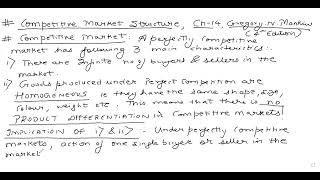 # Competitive Market Structure, Ch-14, Gregory. N. Mankiw
# Competitive Market: A perfectly competitive (4th Edition)
market has following 3 main characteristics:.
i) There are Infinite no of buyers & sellers in
the market.
ii) Goods produced under Perfect Competition are
HOMOGENEOUS ie they have the same shape, size,
colour, weight etc. This means that there is no
PRODUCT DIFFERENTIATION in Competitive Markets
IMPLICATION OF i) & ii) - Under perfectly competitive
markets, action of one single buyer or seller in
the market